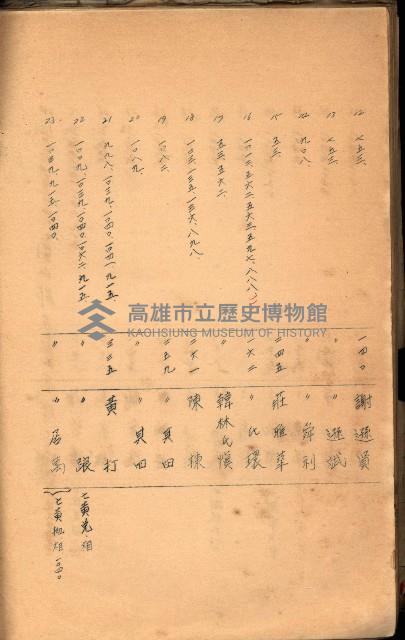 12 七五三、 一四〇 謝遜員
13 七五三、 〃 〃遜斌
14 九〇八、 〃 〃舜利
15 五三、 二四五 莊雅華
16 一〇一六、五六二、五六三、五九七、八八八、 一六二 〃氏環
17 五三、五六二、 〃 韓林氏愼
18 一〇三、一三五、一三六、八九八 二六一 陳棟
19 一〇八二、 三五九 〃貝田
20 一〇八九、 〃 〃貝四
21 九九八、一〇三九、一〇四〇、一〇四一、九一五、 三三五 黃打
22 一〇〇九、一〇三九、一〇四〇、一〇六二、九一五、 〃 〃張 七黃光、祖
23 一〇三九、九一五、一〇四〇、 〃 〃居萬 七黃 祖 一四〇
高雄市立歷史博物館
KAOHSIUNG MUSEUM OF HISTORY